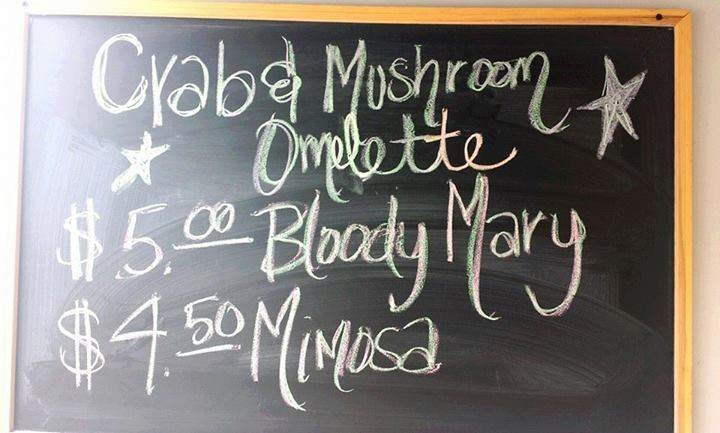 Crab & Mushroom
Omelette
$5.00 Bloody Mary
$4.50 Mimosa